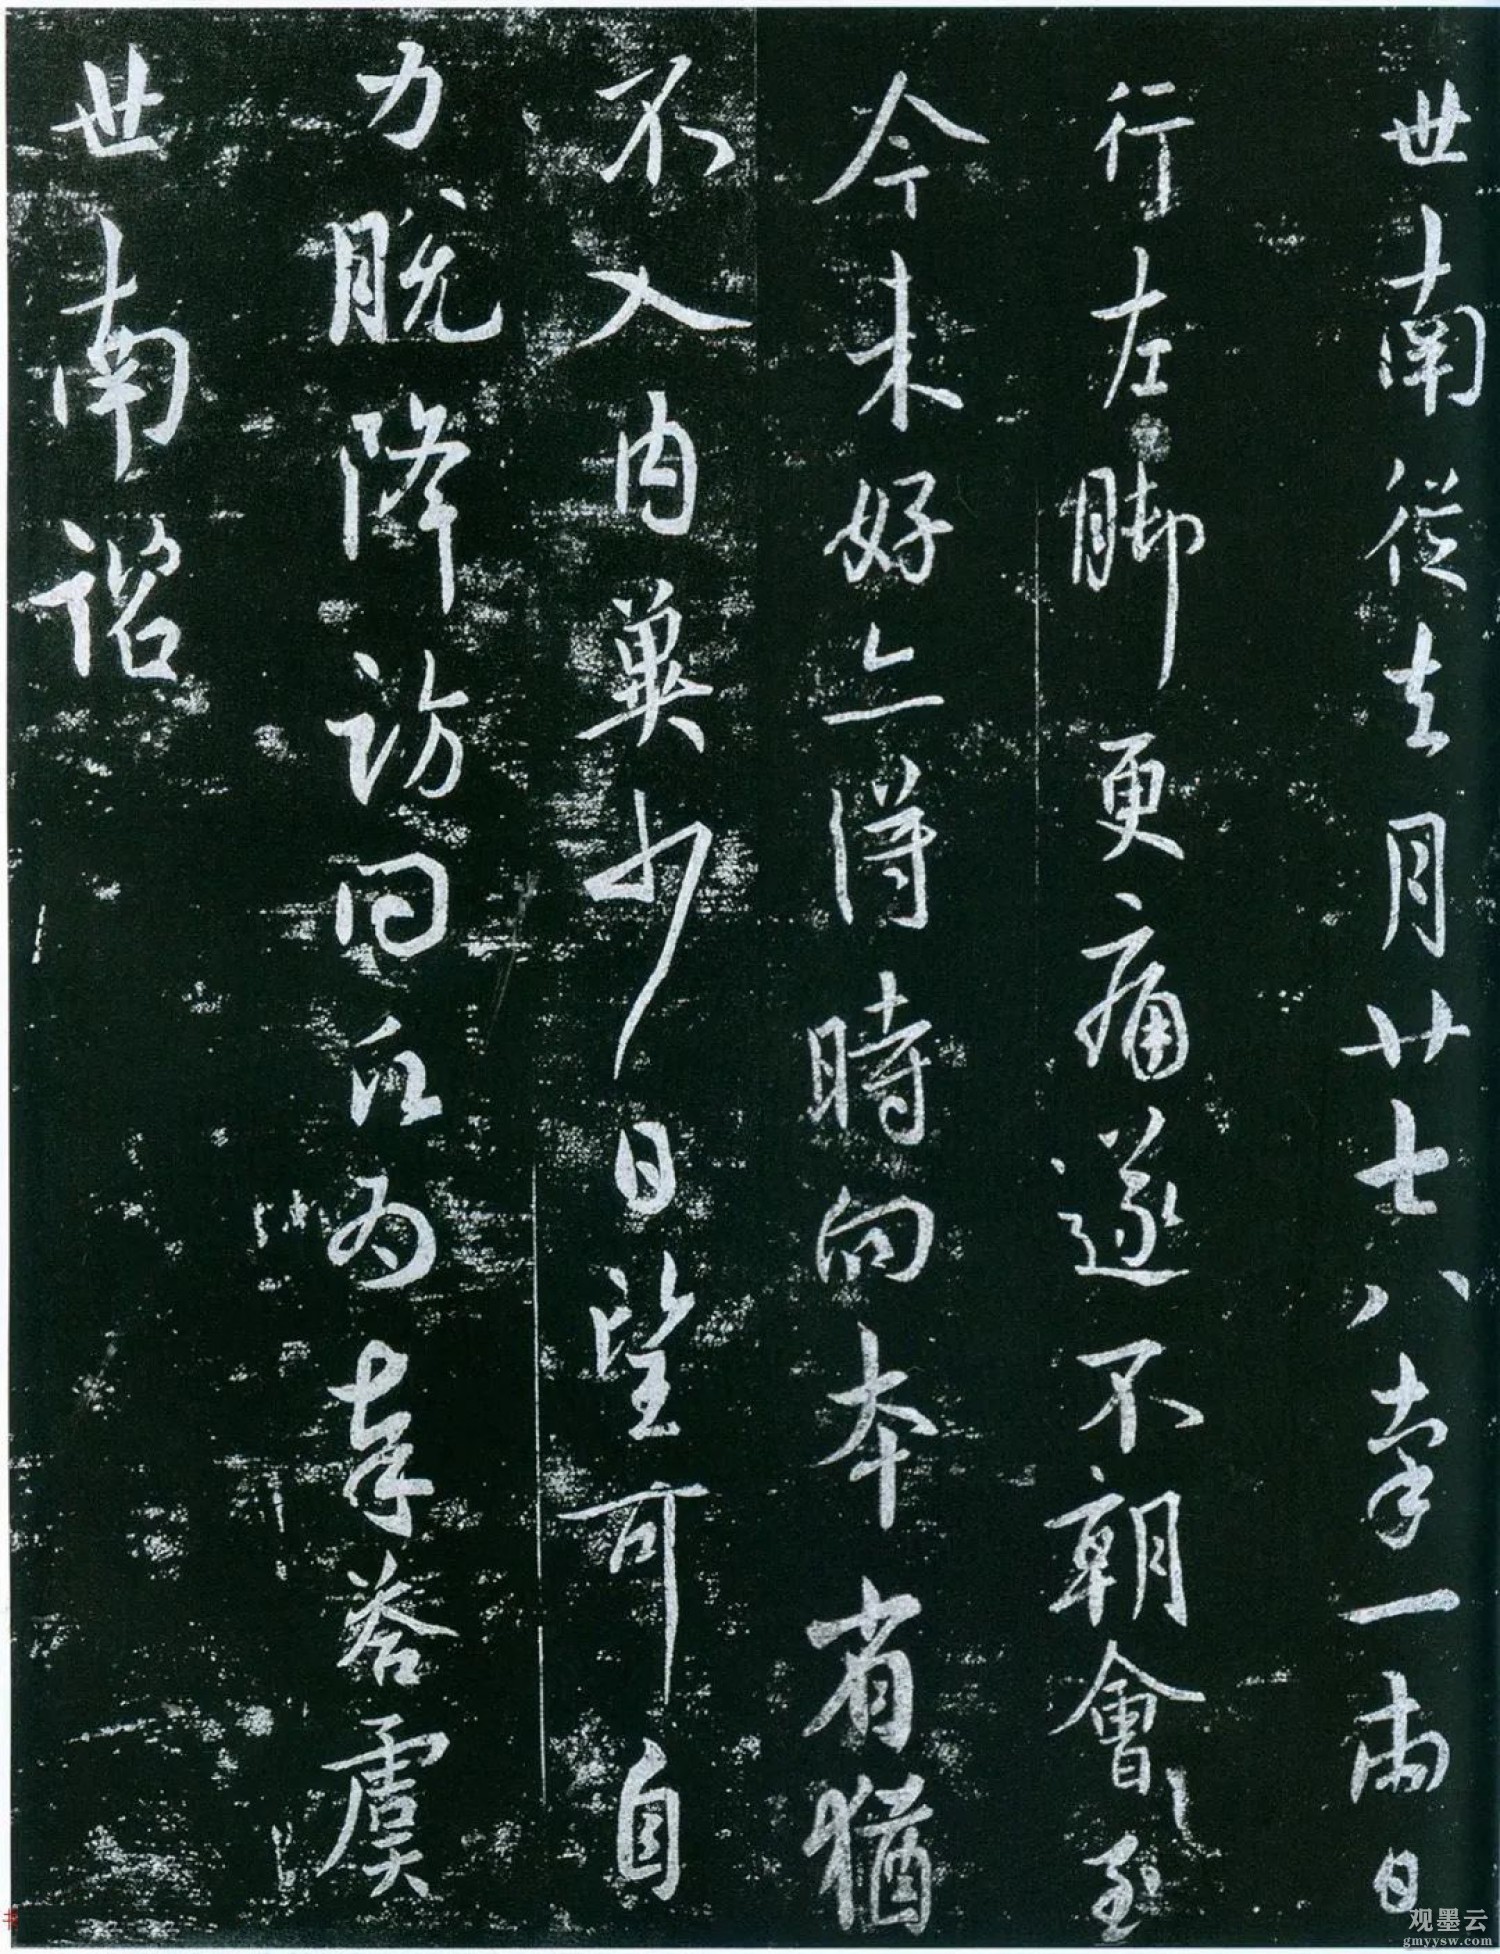 世南從去月廿七八率一兩日
行左脚更痛遂不朝會至
今未好亦得時向本省猶
不入內冀少日望可自
力脱降訪問仁為奉答虞
世南諮
观墨云
gmyysw.com